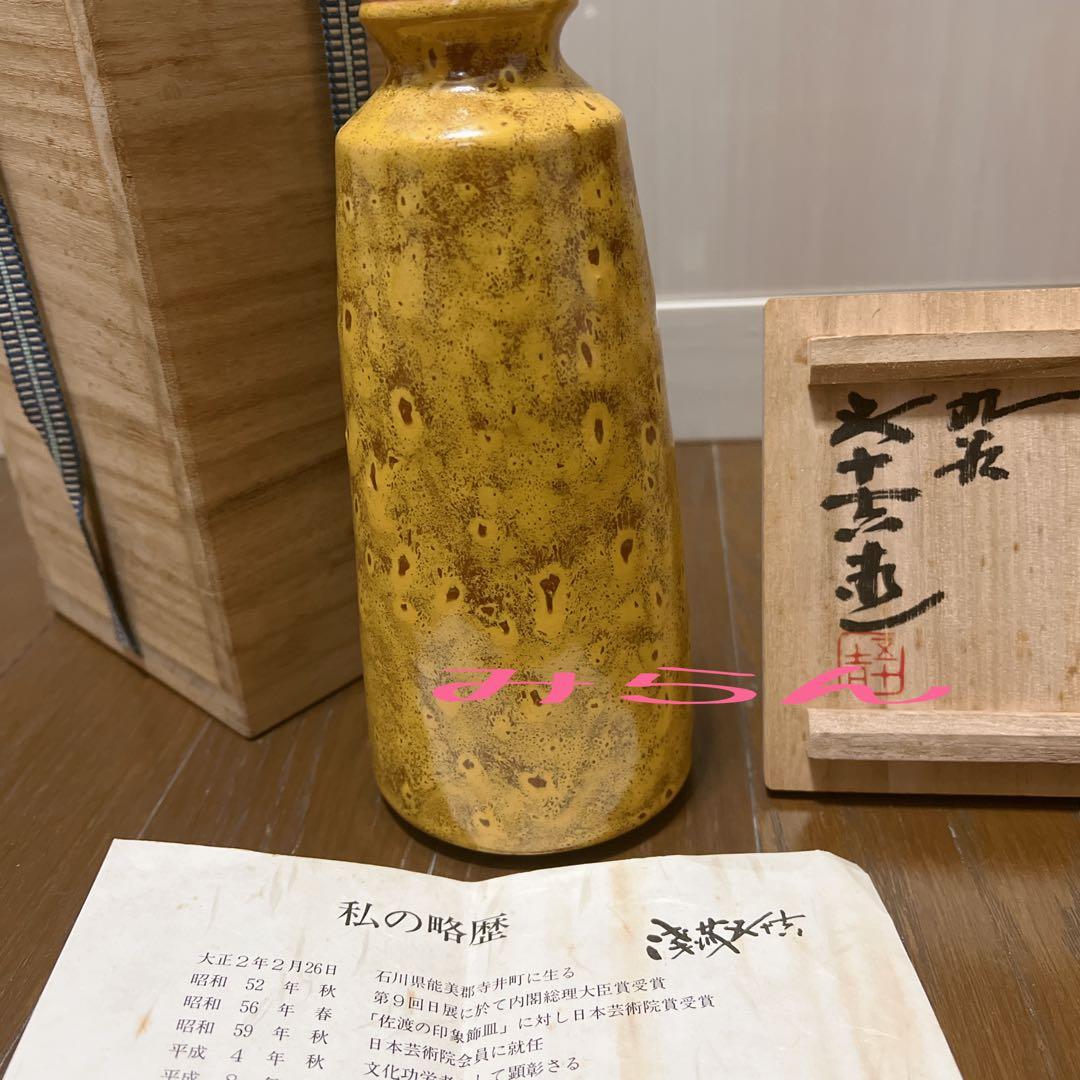 九谷
五十吉造
みらん
私の略歴
浅蔵五十吉
大正2年2月26日 石川県能美郡寺井町に生る
昭和 52 年 秋 第9回日展に於て内閣総理大臣賞受賞
昭和 56 年 春 「佐渡の印象飾皿」に対し日本芸術院賞受賞
昭和 59 年 秋 日本芸術院会員に就任
平成 4 年 秋 文化功労者として顕彰さる
平成 8 年